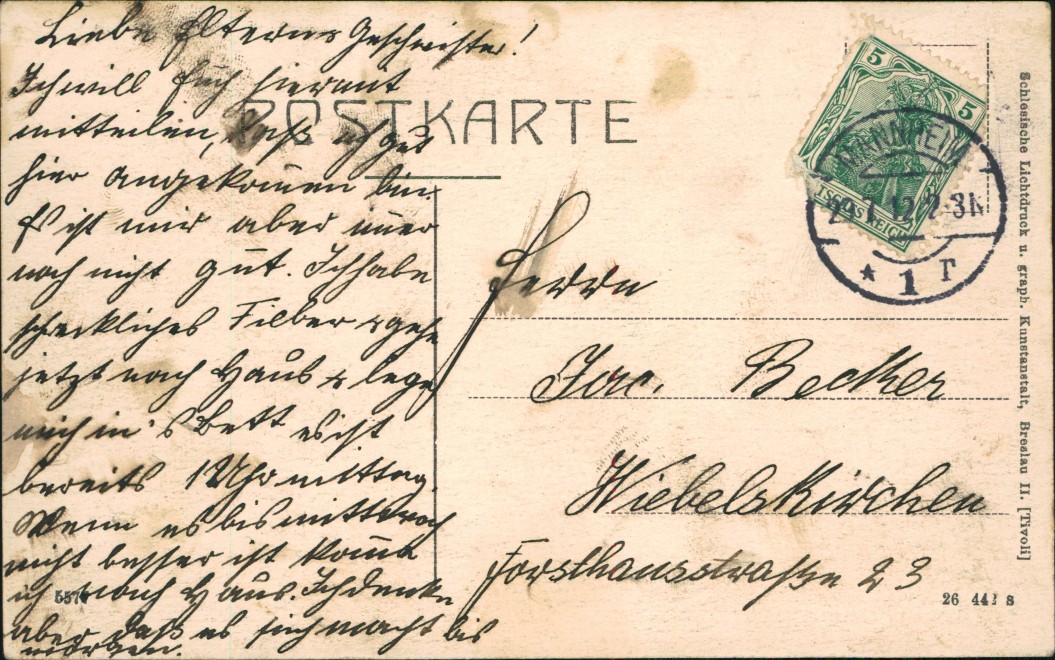 Liebe Eltern u Geschwister!
Ich will Euch hiermit
mitteilen, daß ich gut
hier angekomen bin.
Es ist mir aber imer
noch nicht gut. Ich habe
schreckliches Fieber u gehe
jetzt nach Haus u lege
mich in's Bett es ist
bereits 1 Uhr mittag.
Wenn es bis mittwoch
nicht besser ist kome
ich nach Haus. Ich denke
aber daß es sich macht bis
morgen.
POSTKARTE
5
5
REICH
MANNHEIM
7.12.2-3N
* 1
Herrn
Jac. Becker
Wiebelskirchen
Forsthausstraße 23
557
26 442 8
Schlesische Lichtdruck u. graph. Kunstanstalt, Breslau II. [Tivoli]